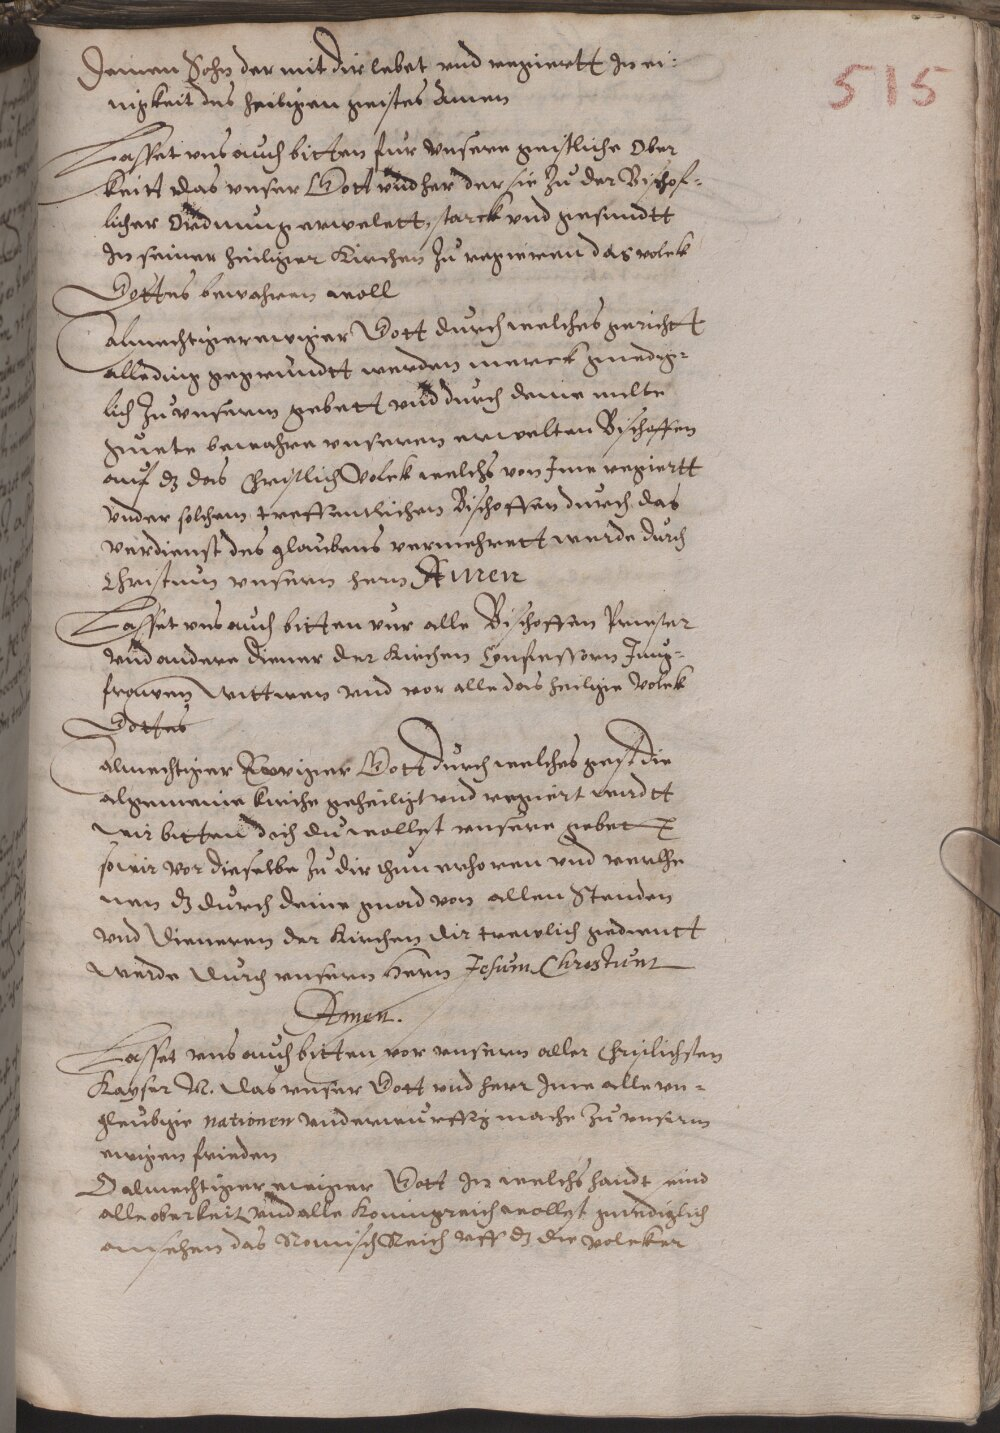 515
Deinen Sohn der mit dir lebet vnd regiertt In ei:
nigkeit des heiligen geistes Amen
Lasset vns auch bitten fur vnsere geistliche Ober
keitt das vnser Gott vnd her der sie zu der Bischof=
licher Ordnung erwelett, starck vnd gesundtt
In seiner heiliger Kirchen zu regieren das volck
Gottes bewahren woll
Almechtiger ewiger Gott durch welches gericht
alle ding gegrundtt werden merck gnedig=
lich zu vnserm gebett vnd durch deine milte
guete bewahre vnseren erwelten Bischoffen
auf dz das Christlich Volck welchs von Ime regiertt
vnder solchem treffentlichen Bischoffen durch das
verdienst des glaubens vermehrett werde durch
Christum vnsern hern Amen
Lasset vns auch bitten vur alle Bischoffen Priester
vnd andere diener der Kirchen Confessorn Jung=
frawen Wittwen vnd vor alle das heilige Volck
Gottes
Almechtiger Ewiger Gott durch welches geist die
algemeine kirche geheiligt vnd regiert wirdtt
wir bitten dich du wollest vnsere gebett
so wir vor dieselbe zu dir thun erhoren vnd verlhe
nen dz durch deine gnad von allen Stenden
vnd Dieneren der Kirchen dir trewlich gedientt
werde durch vnsern hern Jesum Christum
Amen.
Lasset vns auch bitten vor vnsern aller Christlichsten
Kayser N. das vnser Gott vnd herr Ime alle vn=
gleubige nationen vnderwurffig mache zu vnserm
ewigen frieden
O almechtiger ewiger Gott In welchs handt sind
alle oberkeit vnd alle Konnigreich wollest gnediglich
ansehen das Romisch Reich vff dz die volcker